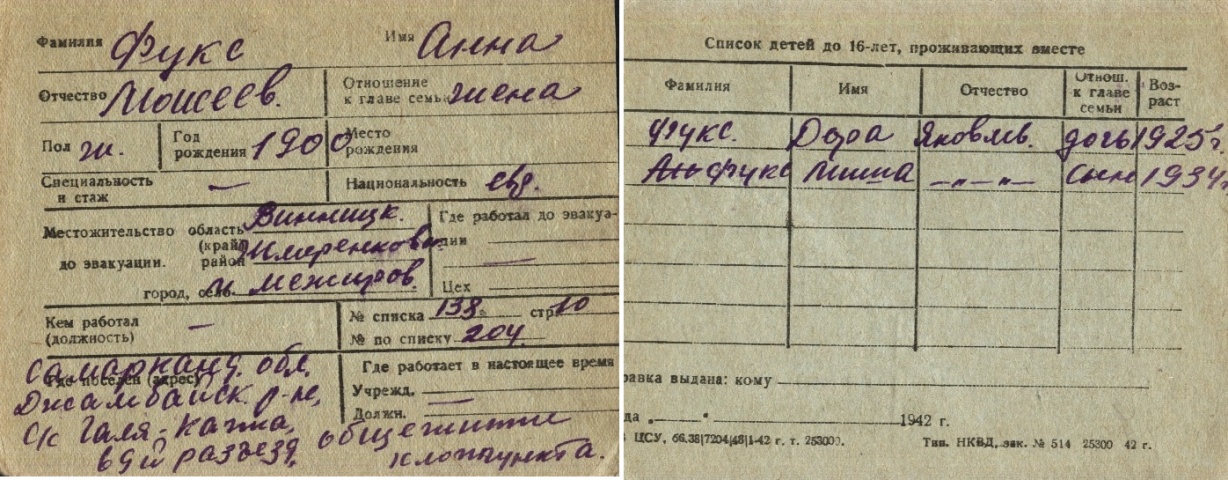 Фамилия Фукс Имя Анна
Отчество Моисеев. Отношение к главе семьи жена
Пол ж. Год рождения 1900 Место рождения
Специальность и стаж — Национальность евр.
Местожительство область Винницк.
(край)
до эвакуации. район
город, село м. Межиров.
Где работал до эвакуации —
Цех
Кем работал (должность) —
№ списка 138. стр. 10
№ по списку 204.
Где поселен (адрес)
Самарканд. обл.
Джамбайск. р-не,
с/с Галя-Капа,
разъезд, общежитие
хлоппункта.
Где работает в настоящее время
Учрежд. —
Должн.
Список детей до 16-лет, проживающих вместе
Фамилия Имя Отчество Отнош. к главе семьи Возраст
Фукс. Дора Яковлев. дочь 1925 г.
Фукс Миша —„—„— сын 1934
равка выдана: кому
да 1942 г.
ЦСУ, 66.38|7204|48|1-42 г. т. 253000. Тип. НКВД, зак. № 514 25300 42 г.